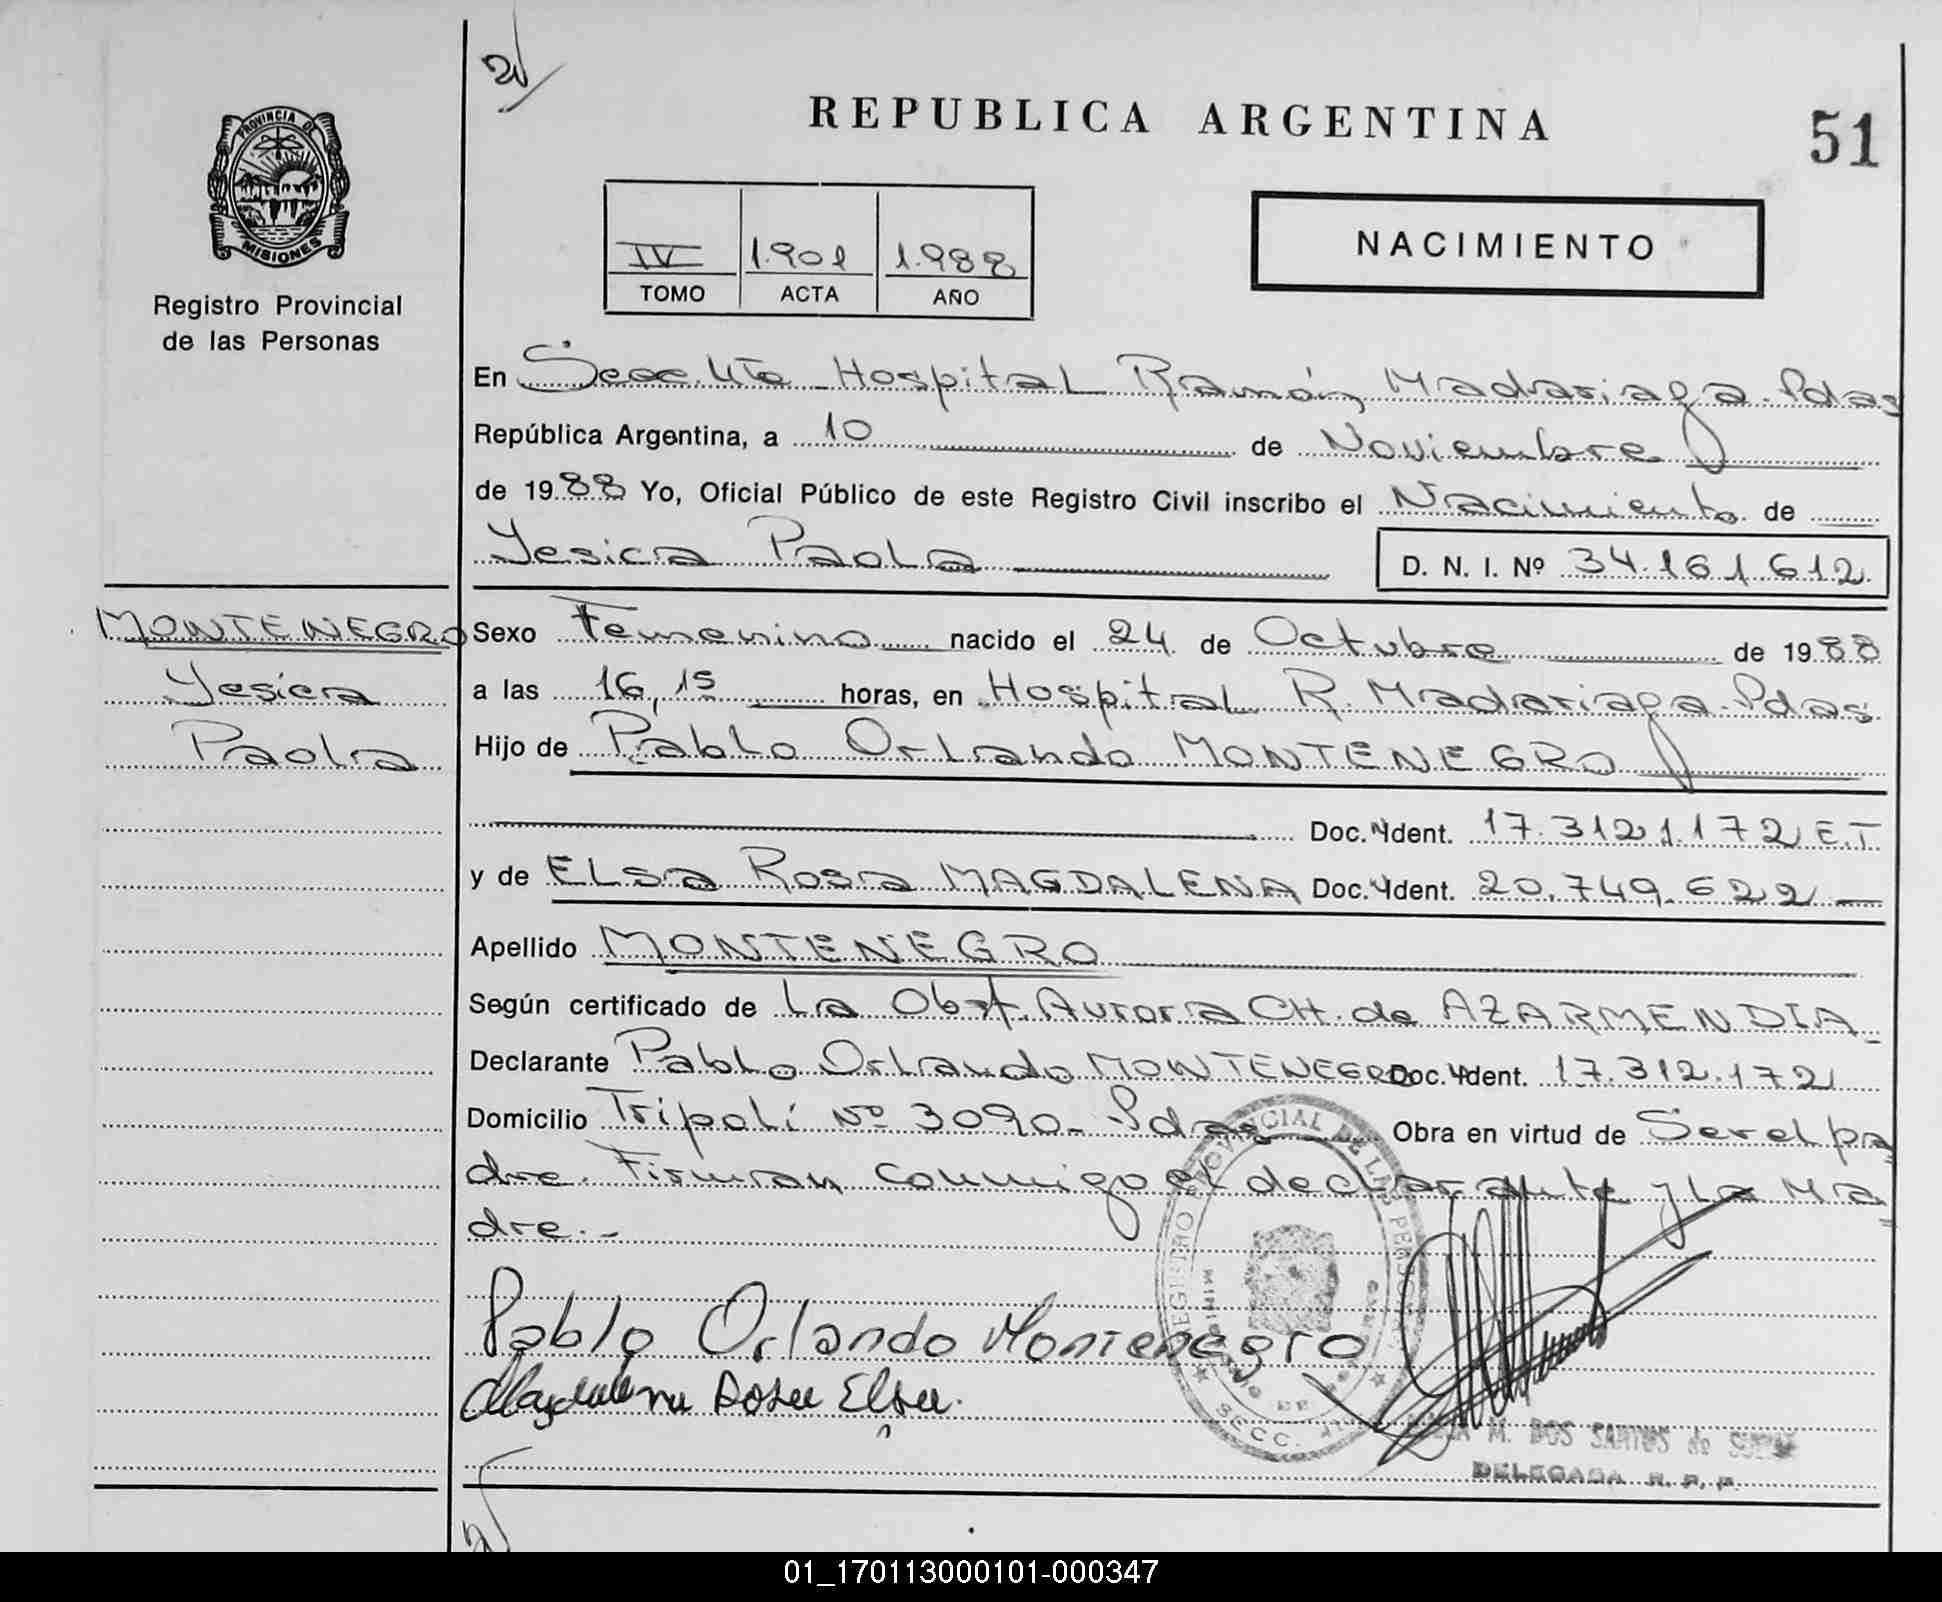 REPUBLICA ARGENTINA
51
PROVINCIA DE
MISIONES
Registro Provincial
de las Personas
IV 1.901 1.988
TOMO ACTA AÑO
NACIMIENTO
En Hospital Ramón Madariaga-Pdas
República Argentina, a 10 de Noviembre
de 1988 Yo, Oficial Público de este Registro Civil inscribo el Nacimiento de
Yesica Paola D. N. I. Nº 34.161.612
MONTENEGRO
Yesica
Paola
Sexo Femenino nacido el 24 de Octubre de 1988
a las 16,15 horas, en Hospital R. Madariaga-Pdas
Hijo de Pablo Orlando MONTENEGRO
Doc. Ydent. 17.312.172 E.T
y de ELsa Rosa MAGDALENA Doc. Ydent. 20.749.622
Apellido MONTENEGRO
Según certificado de La Obst. Aurora CH. de AZARMENDIA
Declarante Pablo Orlando MONTENEGRO Doc. Ydent. 17.312.172
Domicilio Tripoli Nº 3090- Pdas Obra en virtud de Ser el pa
dre. Firman conmigo el declarante y La Ma
dre.-
Pablo Orlando Montenegro
Magdalena Rosa Elsa.
M. DOS SANTOS de
DELEGADA R. P. P.
01_170113000101-000347